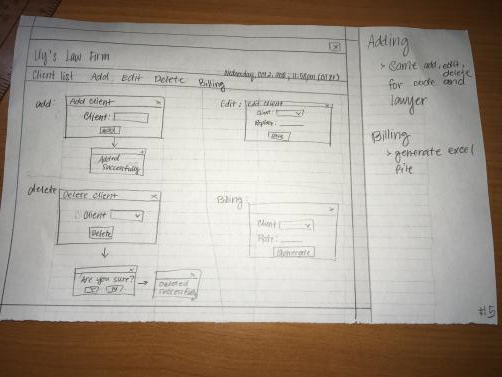 Uy's Law Firm
Client list Add Edit Delete Billing
add:
Add client
Client:
Add
Added
Successfully
Edit:
Edit client
Client:
delete
Delete client
Client
Delete
Are you sure?
Deleted
successfully
Billing
Client
Rate:
Generate
Adding
> same add, edit, delete
for code and
lawyer
Billing
> generate excel
file
#5